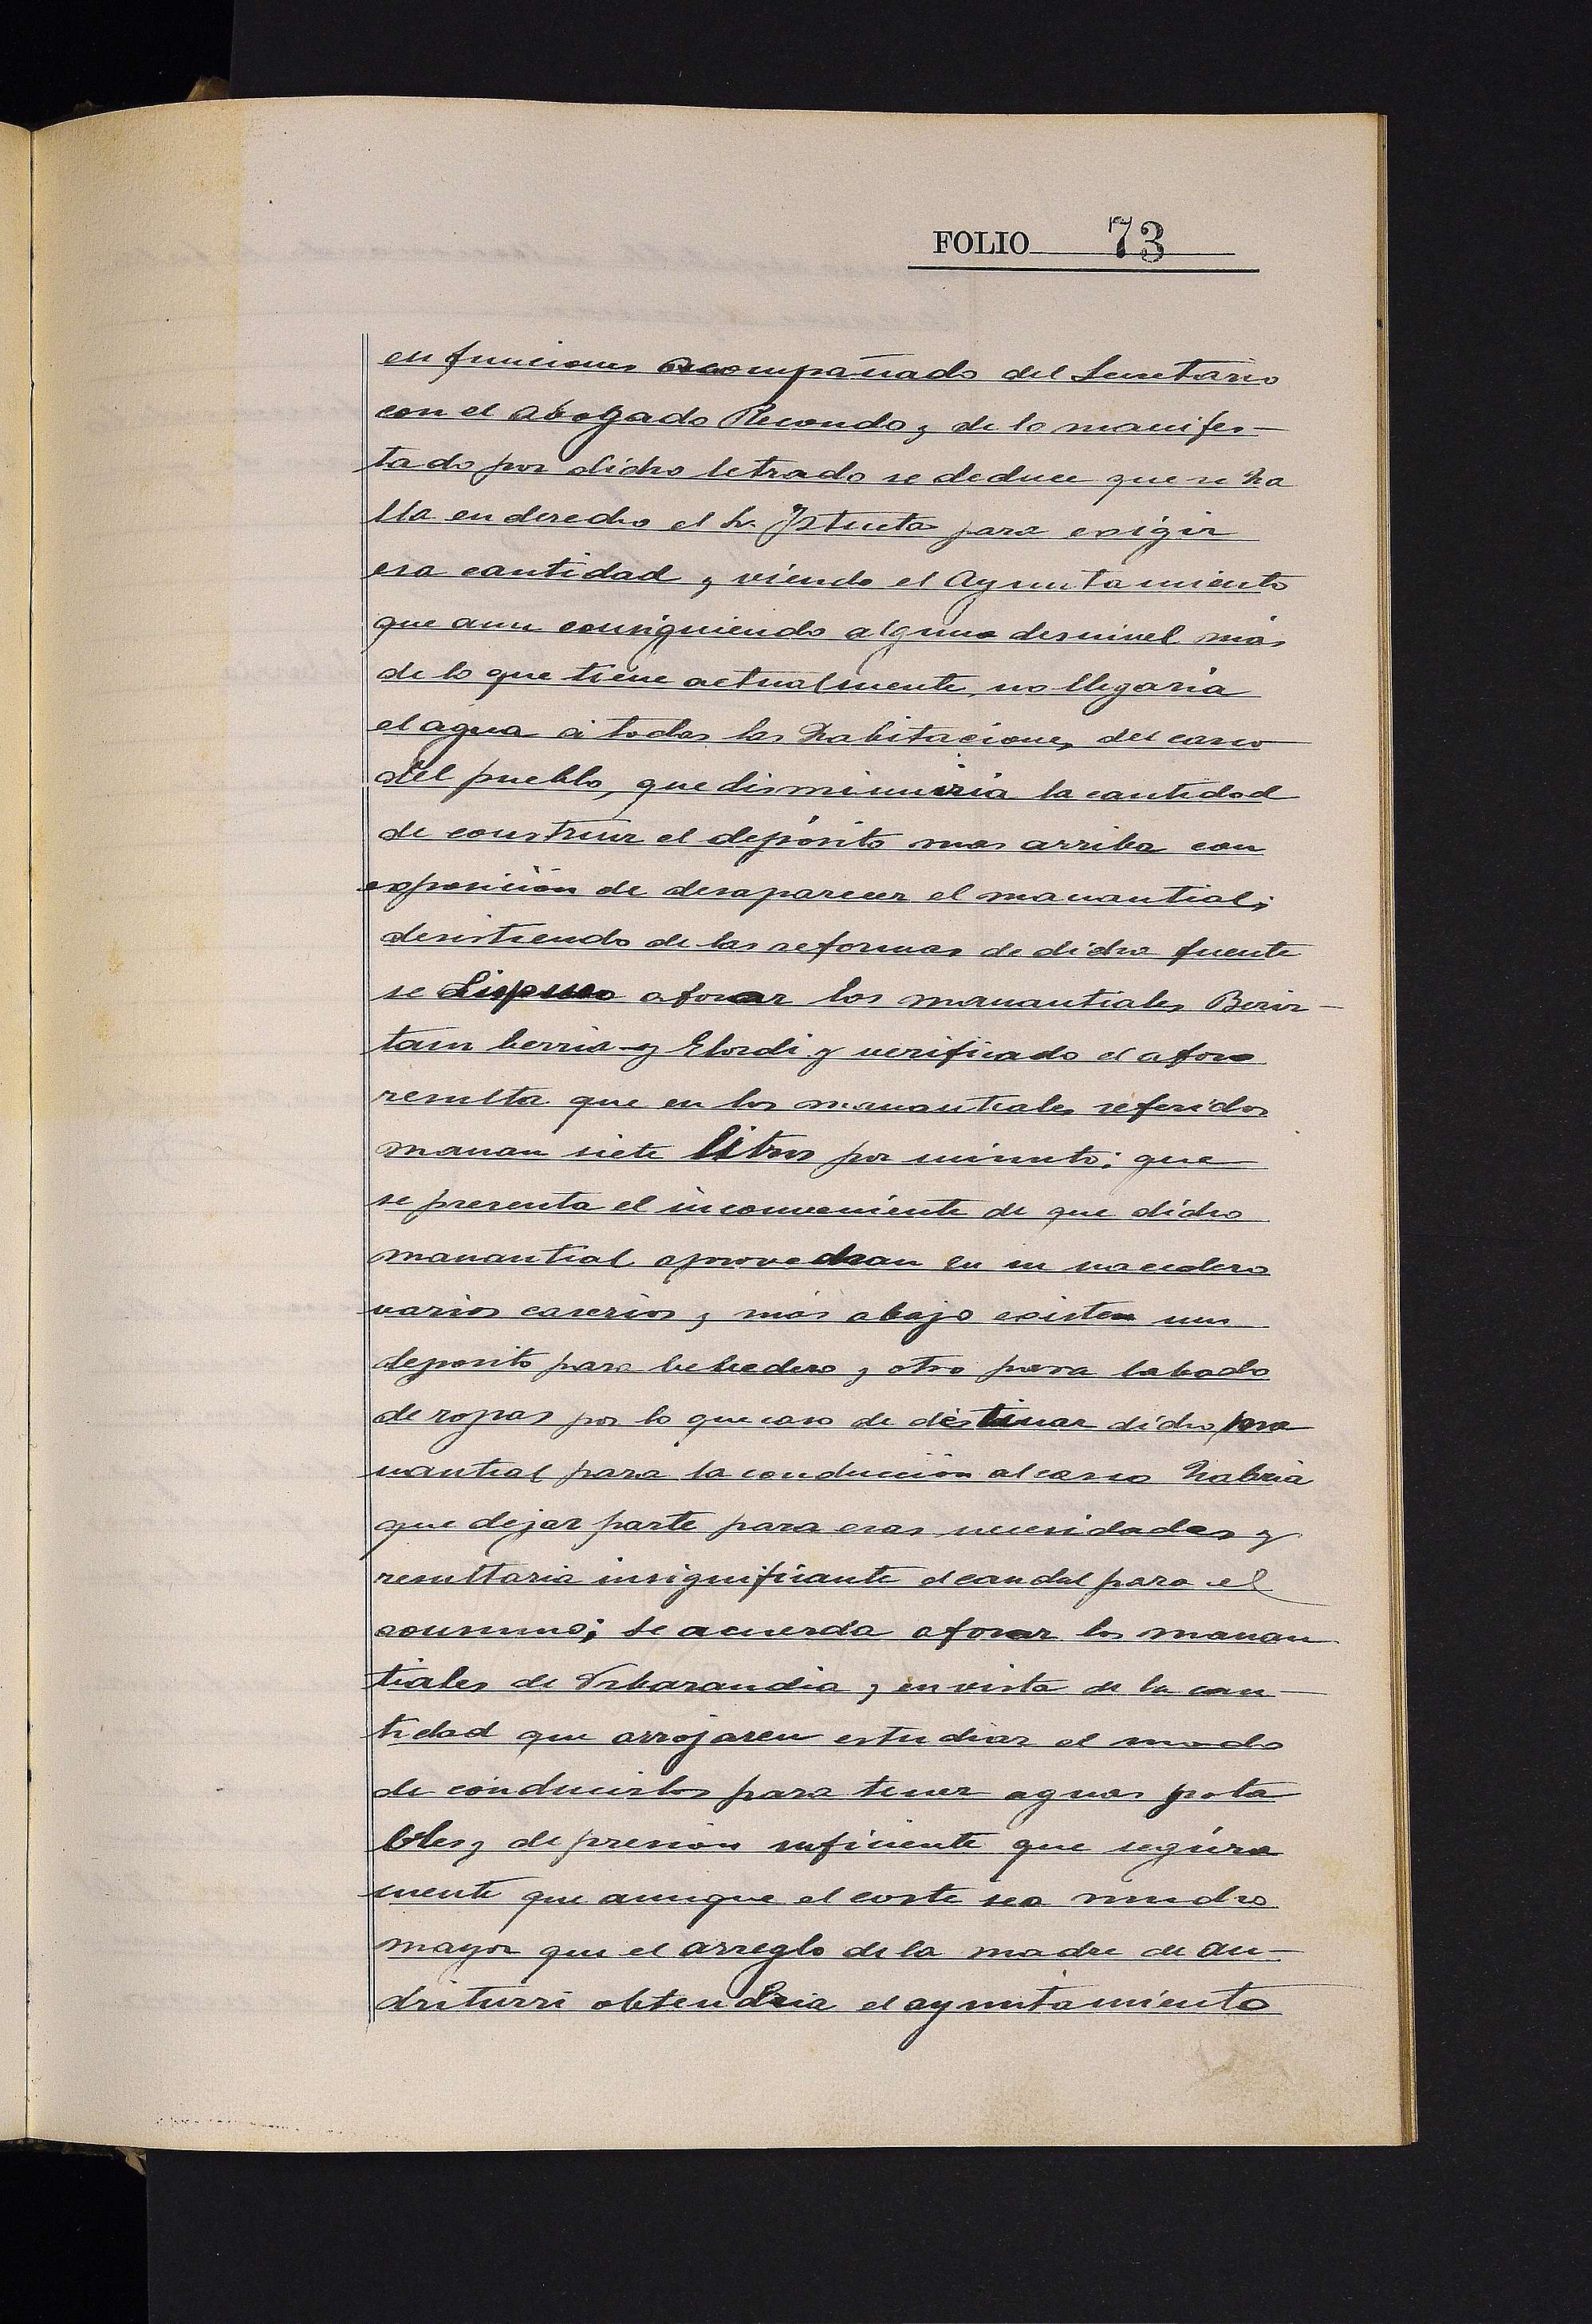 FOLIO 73
en funciones acompañado del Secretario
con el abogado Recondo y de lo manifes-
tado por dicho letrado se deduce que se ha
lla en derecho el Sr. Iztueta para exigir
esa cantidad y viendo el Ayuntamiento
que aun consiguiendo alguno desnivel más
de lo que tiene actualmente, no llegaria
el agua á todas las habitaciones del casco
del pueblo, que disminuiria la cantidad
de construir el depósito mas arriba con
exposición de desaparecer el manantial;
desistiendo de las reformas de dicha fuente
se dispuso aforar los manantiales
berria y Elordi y verificado el aforo
resulta que en los manantiales referidos
manan siete litros por minuto; que
se presenta el inconveniente de que dicho
manantial aprovechan en su nacedero
varios caserios y más abajo existen un
deposito para bebedero y otro para labado
de ropas por lo que caso de destinar dicho ma
nantial para la conducción al casco habria
que dejar parte para esas necesidades y
resultaria insignificante el caudal para el
consumo; se acuerda aforar los manan
tiales de Urbarandia y en vista de la can-
tidad que arrojaren estudiar el modo
de conducirlos para tener aguas pota
bles y de presion suficiente que segura
mente que aunque el coste sea mucho
mayor que el arreglo de la madre de an-
driturri obtendria el ayuntamiento